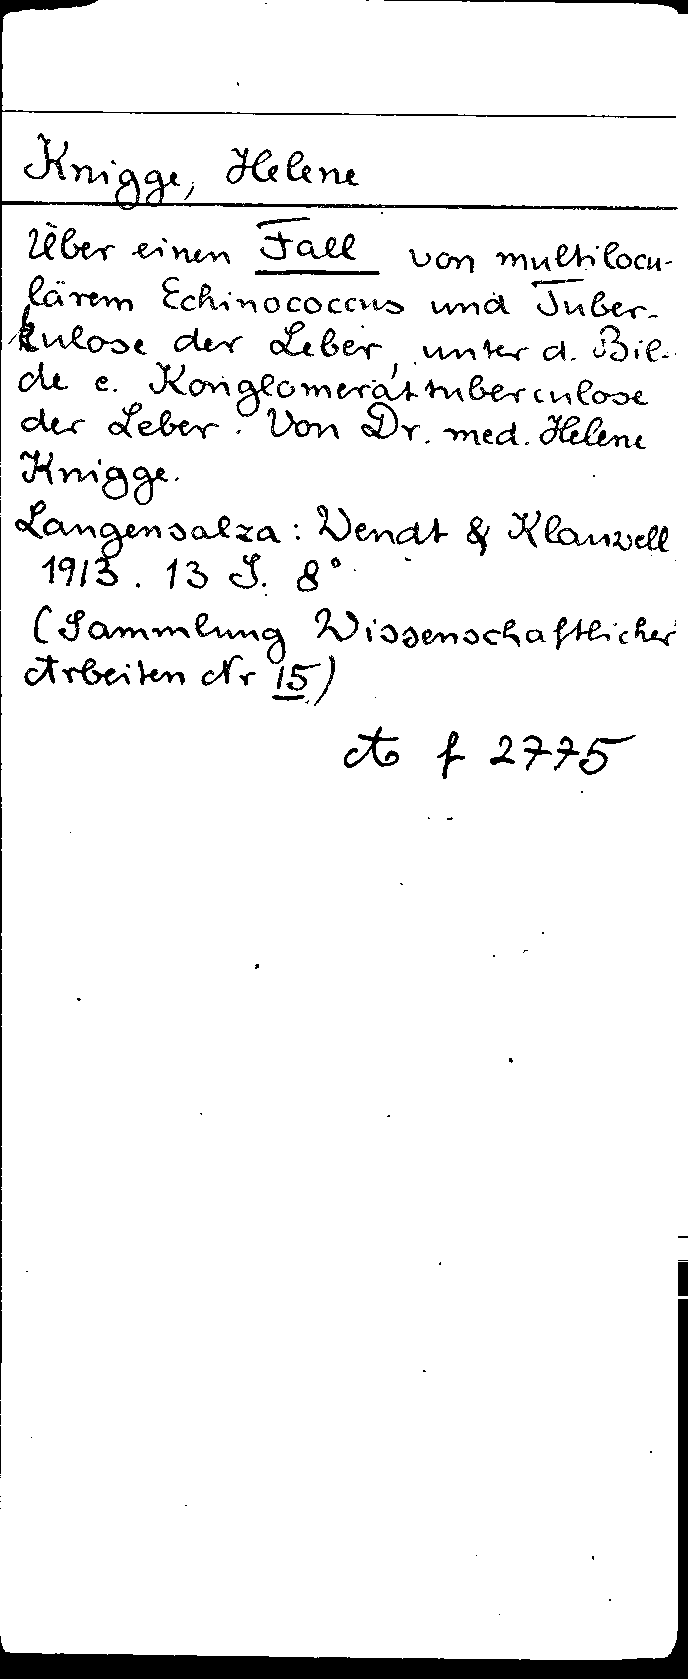 Knigge, Helene
Über einen Fall von multilocu-
lärem Echinococcus und Tuber-
kulose der Leber, unter d. Bil-
de e. Konglomerattuberculose
der Leber. Von Dr. med. Helene
Knigge.
Langensalza: Wendt & Klauwell
1913. 13 S. 8°
(Sammlung Wissenschaftlicher
Arbeiten Nr 15)
f 2775